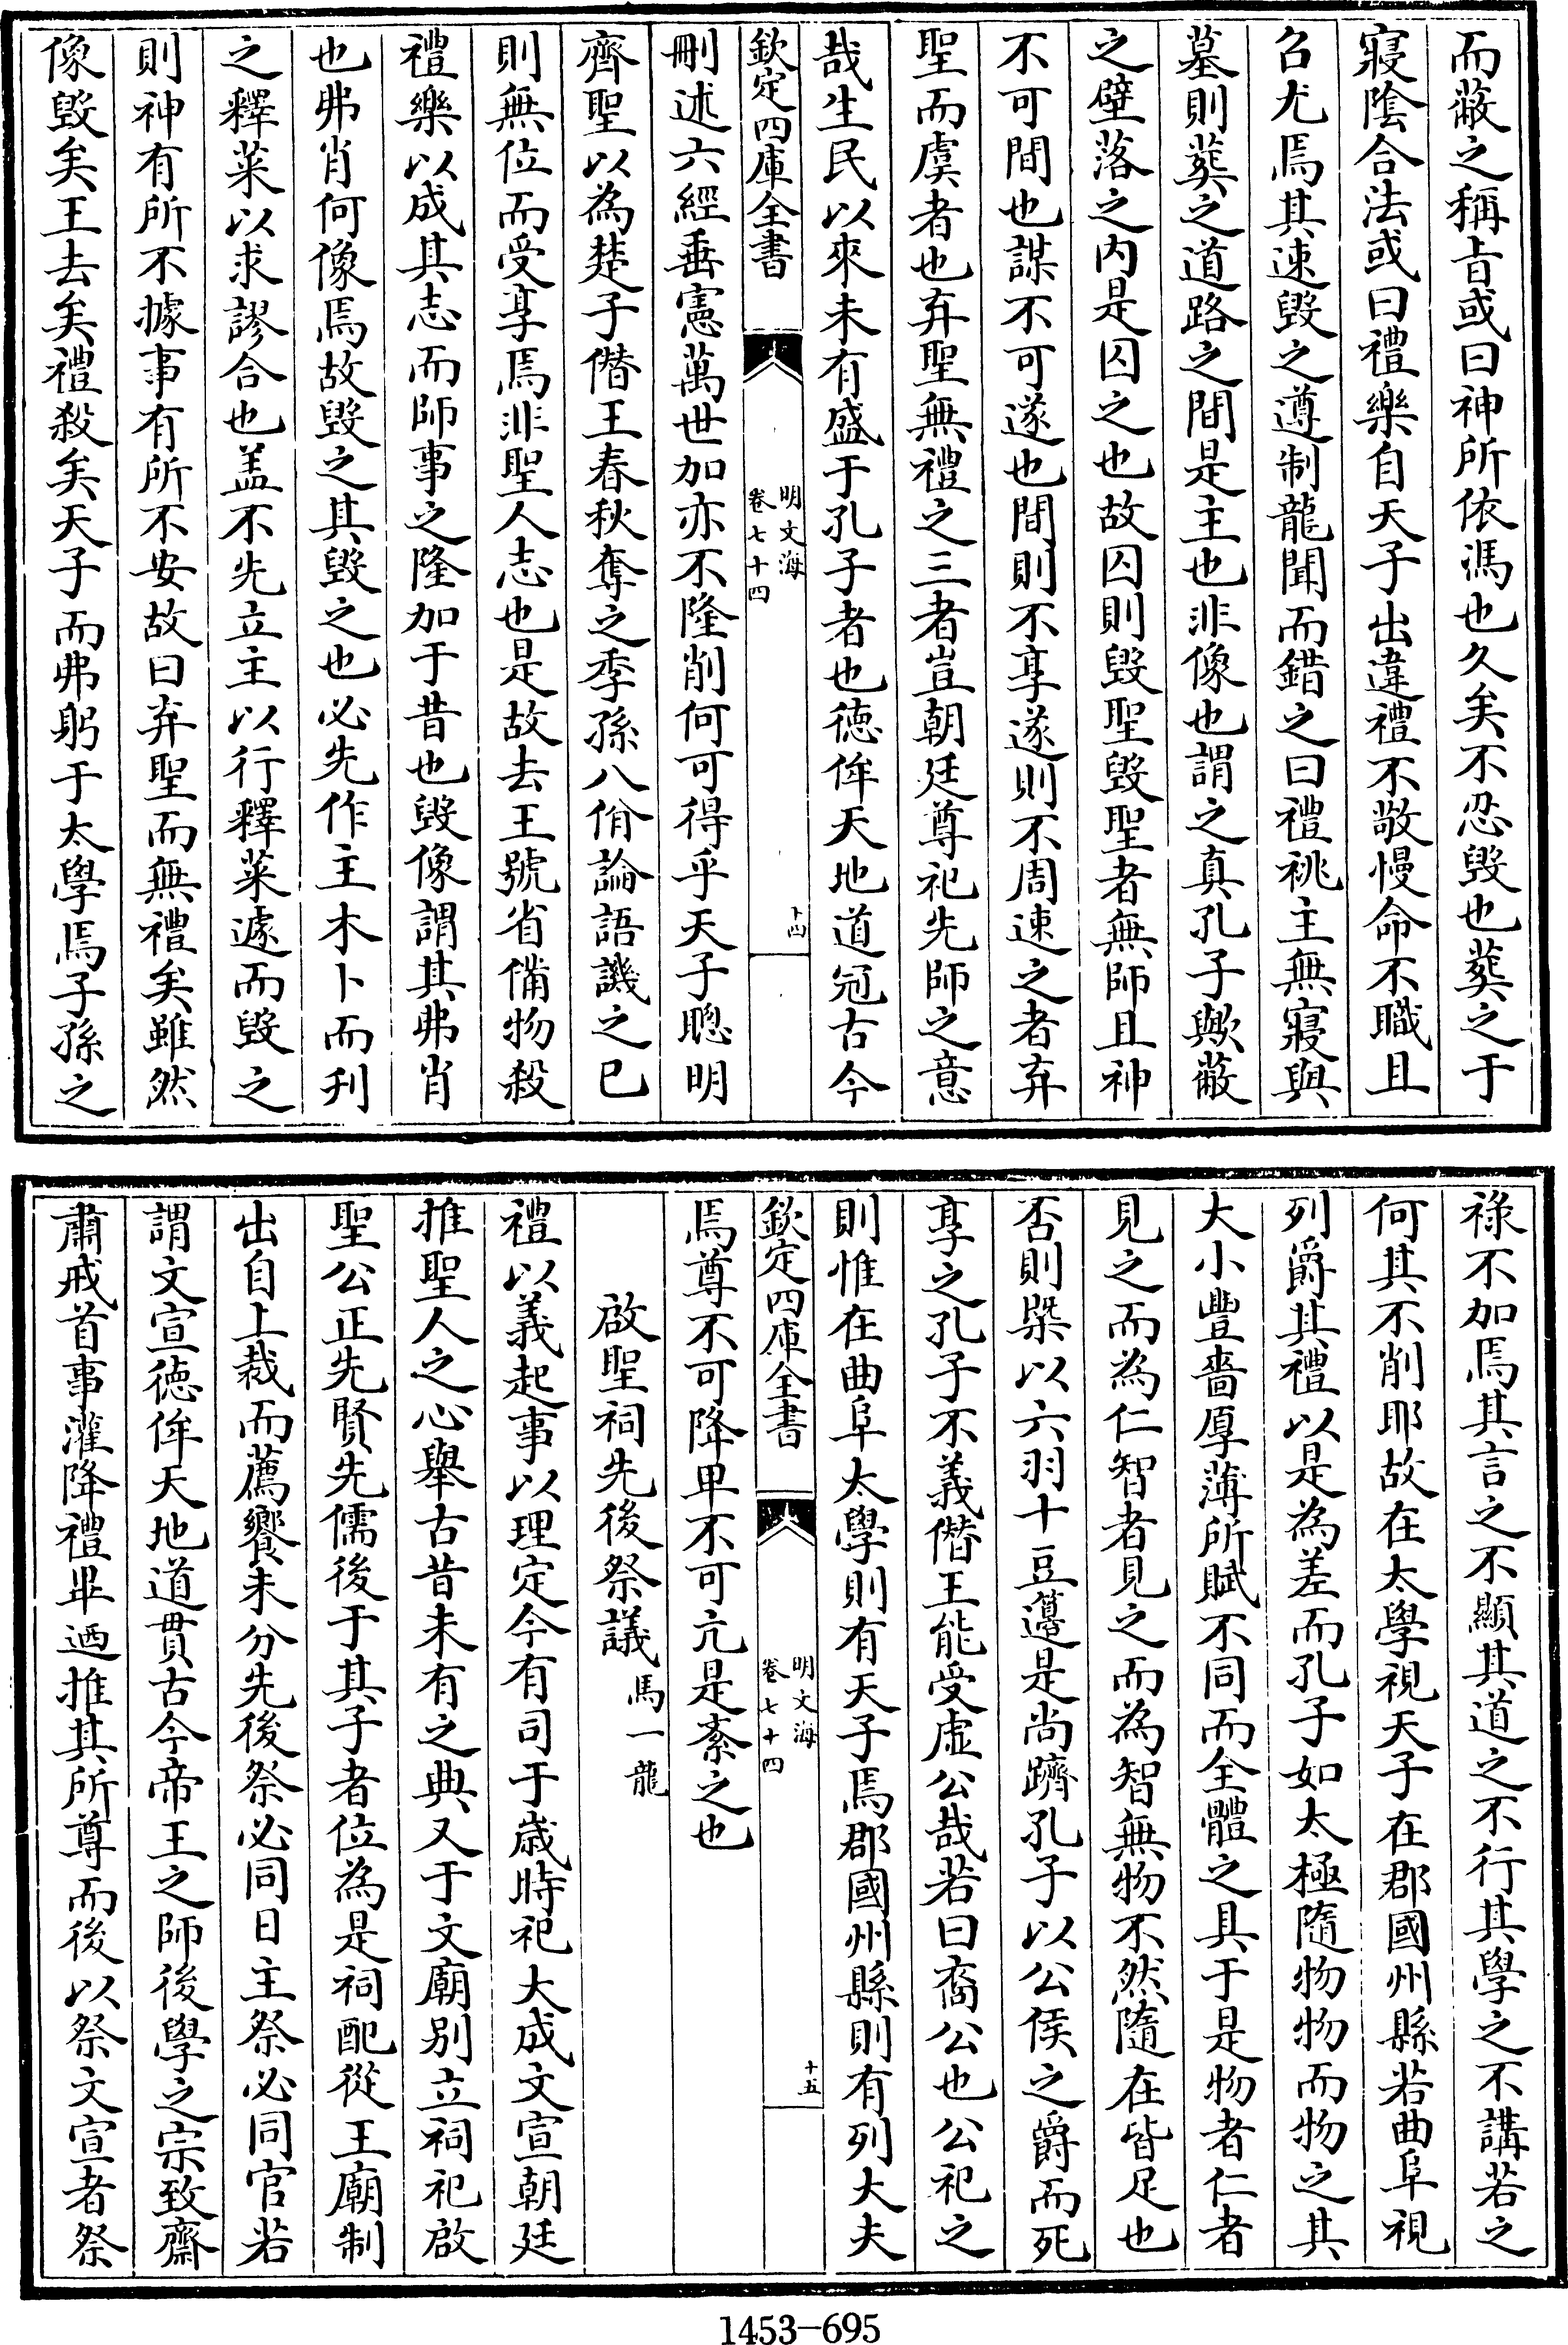 而蔽之稱㫖或曰神所依馮也久矣不忍毁也葬之于
寢陰合法或曰禮樂自天子出違禮不敬慢命不職且
召尤焉其速毁之遵制龍聞而錯之曰禮祧主無寢與
墓則葬之道路之間是主也非像也謂之真孔子歟蔽
之壁落之内是囚之也故囚則毁聖毁聖者無師且神
不可間也謀不可遂也間則不享遂則不周速之者弃
聖而虞者也弃聖無禮之三者豈朝廷尊祀先師之意
哉生民以來未有盛于孔子者也徳侔天地道冠古今
欽定四庫全書
明文海
卷七十四
十四
刪述六經垂憲萬世加亦不隆削何可得乎天子聰明
齊聖以為楚子僭王春秋奪之季孫八佾論語譏之已
則無位而受享焉非聖人志也是故去王號省備物殺
禮樂以成其志而師事之隆加于昔也毁像謂其弗肖
也弗肖何像焉故毁之其毁之也必先作主木卜而刋
之釋菜以求謬合也盖不先立主以行釋菜遽而毁之
則神有所不據事有所不安故曰弃聖而無禮矣雖然
像毁矣王去矣禮殺矣天子而弗躬于太學焉子孫之
祿不加焉其言之不顯其道之不行其學之不講若之
何其不削耶故在太學視天子在郡國州縣若曲阜視
列爵其禮以是為差而孔子如太極隨物物而物之其
大小豐嗇厚薄所賦不同而全體之具于是物者仁者
見之而為仁智者見之而為智無物不然隨在皆足也
否則槩以六羽十豆籩是尚躋孔子以公侯之爵而死
享之孔子不義僭王能受虛公哉若曰裔公也公祀之
則惟在曲阜太學則有天子焉郡國州縣則有列大夫
欽定四庫全書
明文海
卷七十四
十五
焉尊不可降卑不可亢是紊之也
啟聖祠先後祭議 馬一龍
禮以義起事以理定今有司于歳時祀大成文宣朝廷
推聖人之心舉古昔未有之典又于文廟别立祠祀啟
聖公正先賢先儒後于其子者位為是祠配從王廟制
出自上裁而薦饗未分先後祭必同日主祭必同官若
謂文宣徳侔天地道貫古今帝王之師後學之宗致齋
肅戒首事灌降禮畢廼推其所尊而後以祭文宣者祭
1453-695